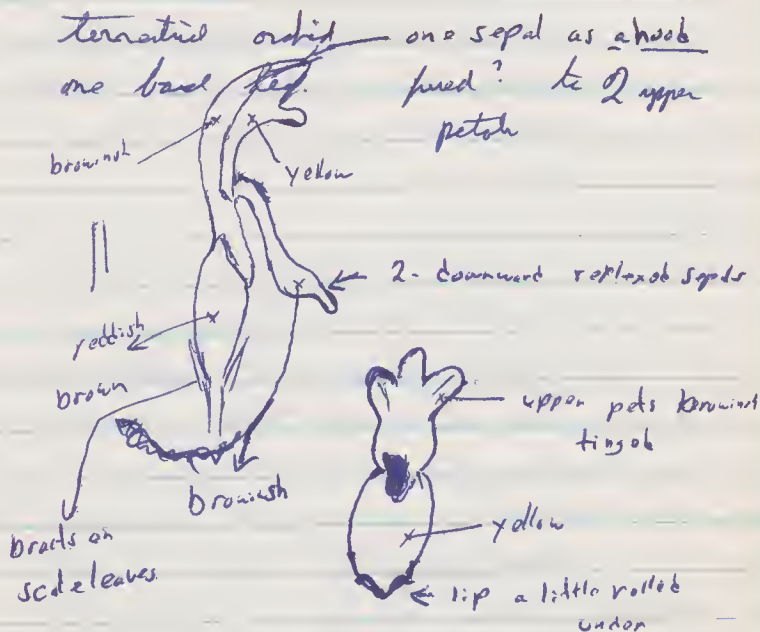 terrestrial orchid
one basal
one sepal as a hood
fused? to 2 upper
petals
browinsh
yellow
2 - downward reflexed sepals
reddish
brown
browinsh
bracts on
scale leaves
upper pets browinsh
tinged
yellow
lip a little rolled
under